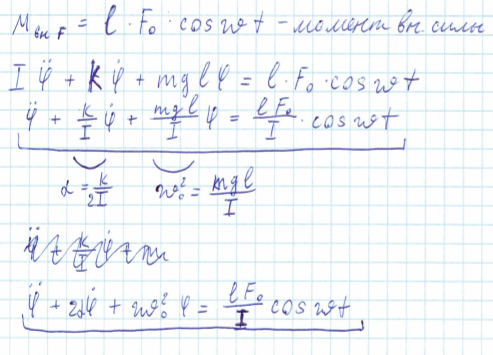 M вн F = l · F₀ · cos ωt - момент вн. силы
I φ̈ + k φ̇ + mglφ = l · F₀ · cos ωt
φ̈ + k/I φ̇ + mgl/I φ = lF₀/I · cos ωt
α = k/2I ω₀² = mgl/I
φ̈ + 2αφ̇ + ω₀² φ = lF₀/I cos ωt